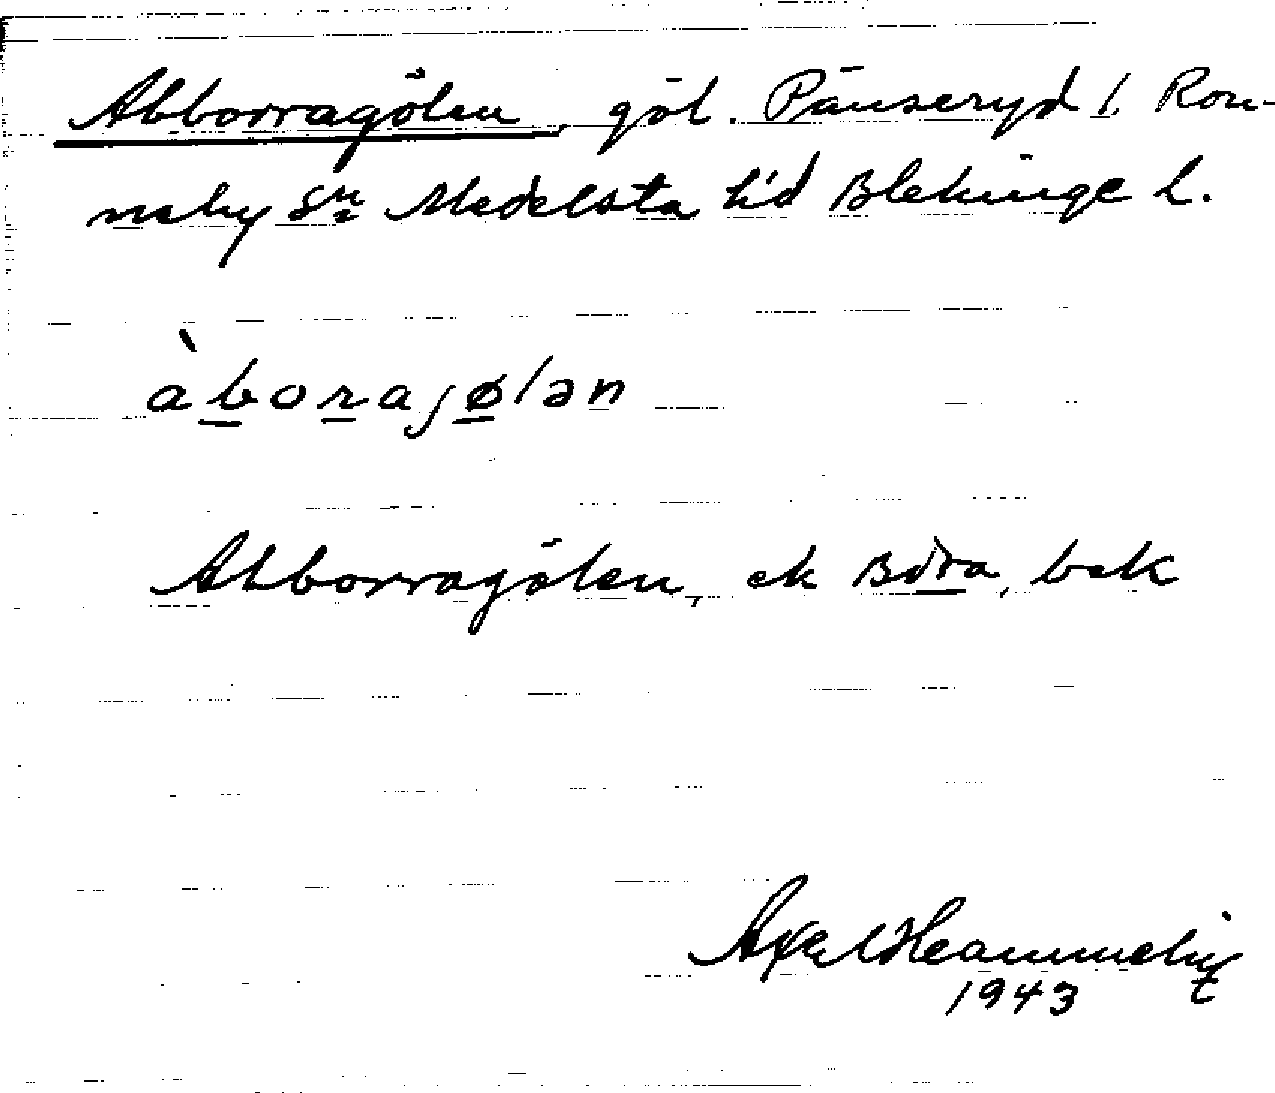 Abborragölen, göl. Pänseryd 1. Ron-
neby Sn Medelsta hd Blekinge l.
àborajølən
Abborragölen, ek Bära, bek
1943